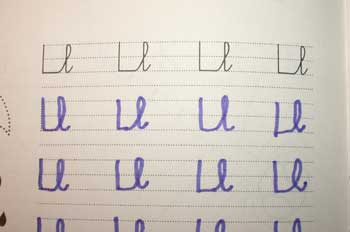 Ll Ll Ll Ll
Ll Ll Ll Ll
Ll Ll Ll Ll